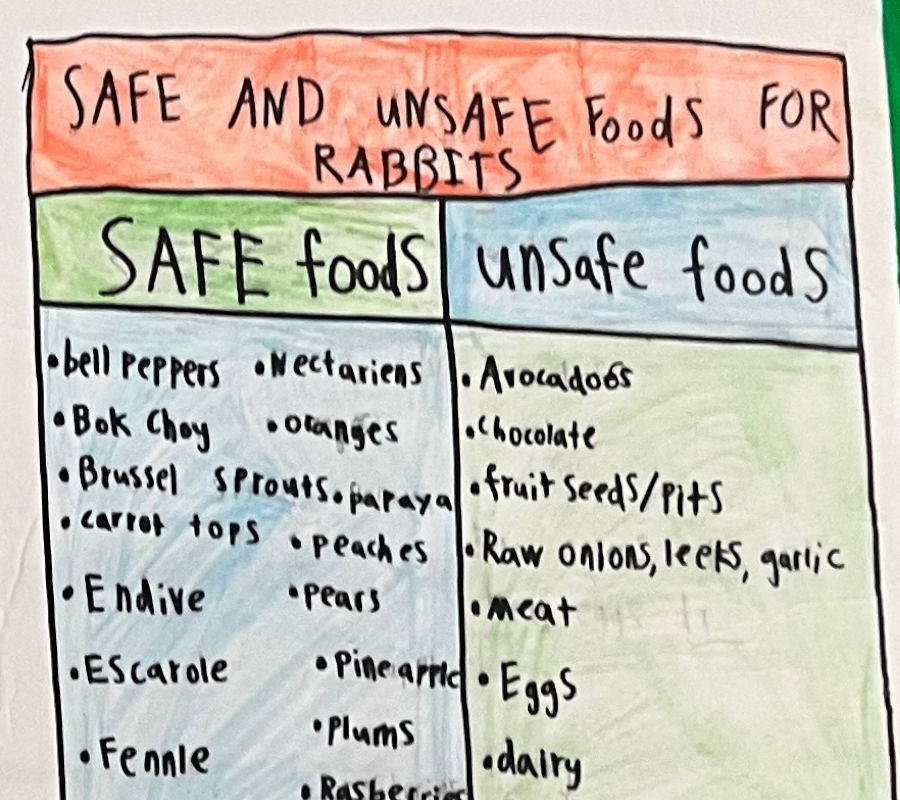 SAFE AND UNSAFE Foods FOR
RABBITS
SAFE foods
unsafe foods
•bell peppers
•Bok Choy
•Brussel sprouts
•carrot tops
•Endive
•Escarole
•Fennle
•Nectariens
•oranges
•papaya
•peaches
•pears
•Pineapple
•Plums
•Rasberries
•Avocadoos
•chocolate
•fruit seeds/pits
•Raw onions, leeks, garlic
•meat
•Eggs
•dairy